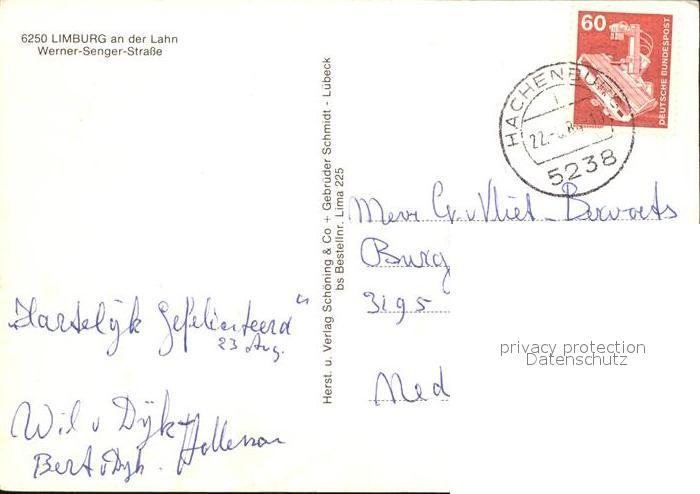 6250 LIMBURG an der Lahn
Werner-Senger-Straße
60
DEUTSCHE BUNDESPOST
HACHENBURG
5238
Herst. u. Verlag Schöning & Co + Gebrüder Schmidt - Lübeck
bs Bestellnr. Lima 225
Mevr G. v Vliet - Bervoets
Burg
3195
Ned
privacy protection
Datenschutz
„Hartelijk Gefeliciteerd“
23 Aug.
Wil v Dijk-
Bert v Dijk.